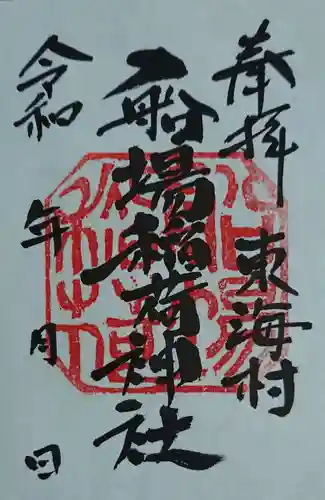 奉拝 東海村
船場稲荷神社
令和 年 月 日